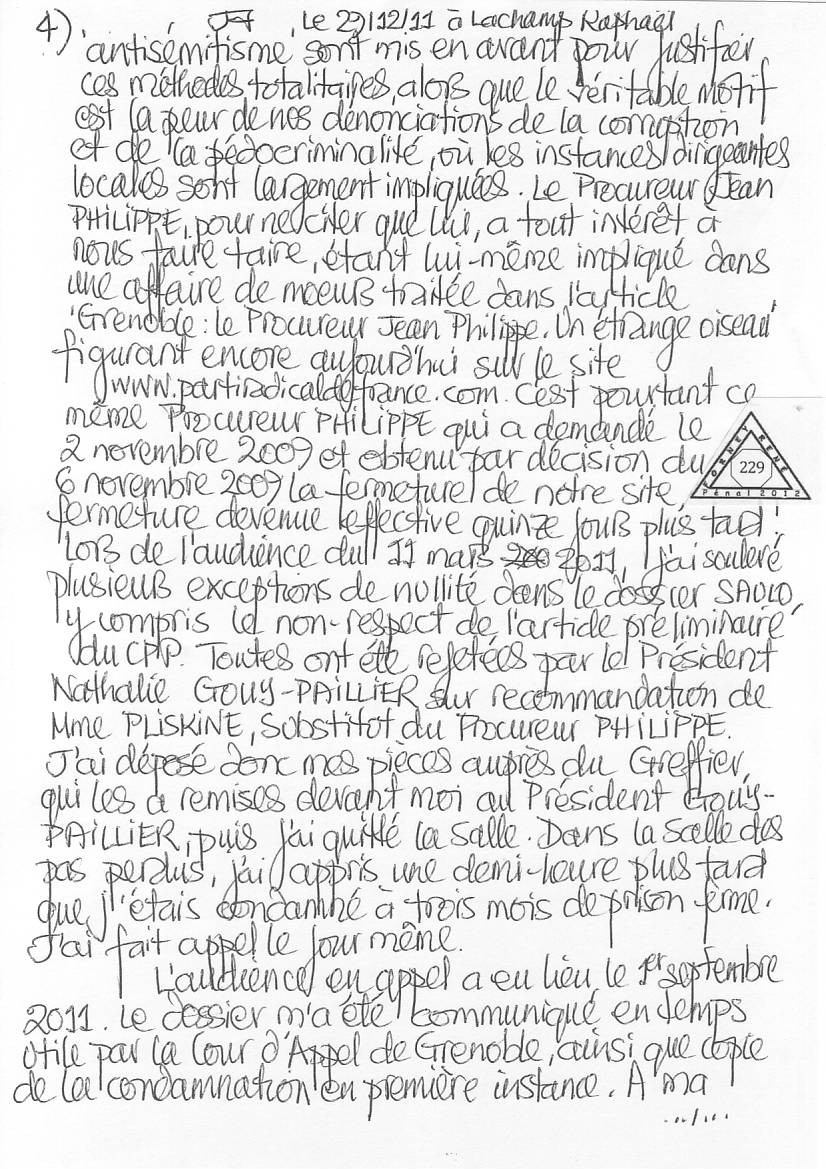 4) Le 29/12/11 à Lachamp Raphaël
antisémitisme sont mis en avant pour justifier
ces méthodes totalitaires, alors que le véritable motif
est la peur de nos dénonciations de la corruption
et de la pédocriminalité, où les instances dirigeantes
locales sont largement impliquées. Le Procureur Jean
PHILIPPE, pour ne citer que lui, a tout intérêt à
nous faire taire, étant lui-même impliqué dans
une affaire de moeurs traitée dans l'article
'Grenoble : le Procureur Jean Philippe. Un étrange oiseau'
figurant encore aujourd'hui sur le site
www.partiradicaldefrance.com. C'est pourtant ce
même Procureur PHILIPPE qui a demandé le
2 novembre 2009 et obtenu par décision du
6 novembre 2009 la fermeture de notre site,
fermeture devenue effective quinze jours plus tard !
Lors de l'audience du 11 mars 200 2011, j'ai soulevé
plusieurs exceptions de nullité dans le dossier SAOLO,
y compris le non-respect de l'article préliminaire
du CPP. Toutes ont été rejetées par le Président
Nathalie GOUY-PAILLIER sur recommandation de
Mme PLISKINE, Substitut du Procureur PHILIPPE.
J'ai déposé donc mes pièces auprès du Greffier,
qui les a remises devant moi au Président GOUY-
PAILLIER, puis j'ai quitté la salle. Dans la salle des
pas perdus, j'ai appris une demi-heure plus tard
que j'étais condamné à trois mois de prison ferme.
J'ai fait appel le jour même.
L'audience en appel a eu lieu le 1er septembre
2011. Le dossier m'a été communiqué en temps
utile par la Cour d'Appel de Grenoble, ainsi que copie
de la condamnation en première instance. A ma
.../...
FORNEY RENÉ
229
Pénal 2012